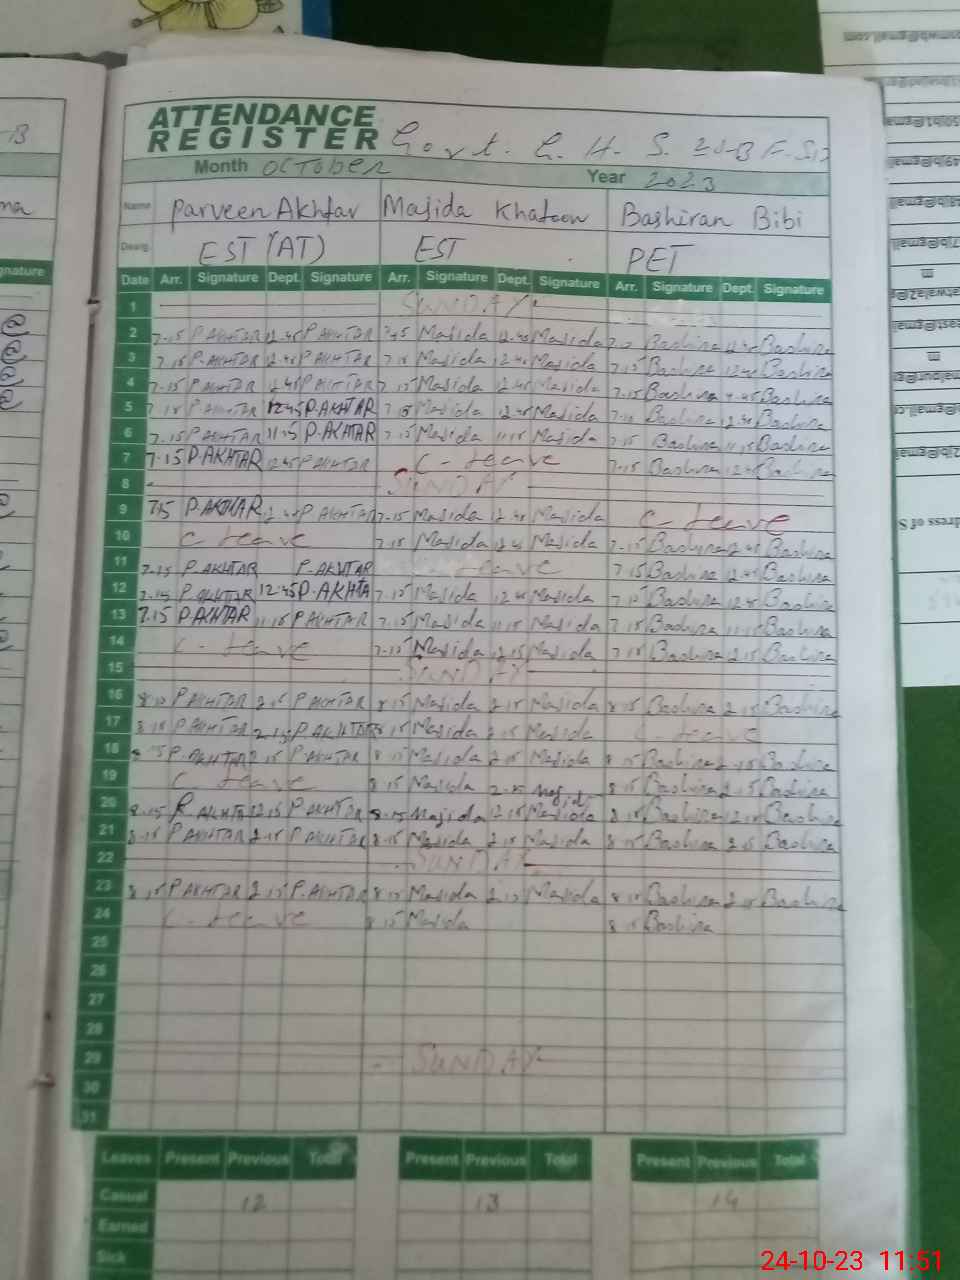 ATTENDANCE
REGISTER Govt. G. H. S.
Month OCTOBER Year 2023
Name Parveen Akhtar Majida Khatoon Bashiran Bibi
Desig. EST (AT) EST PET
Date Arr. Signature Dept. Signature Arr. Signature Dept. Signature Arr. Signature Dept. Signature
1 SUNDAY
2 7.15 P AKHTAR 12.45 P AKHTAR 7.45 Majida 12.45 Majida Bashira 12.45 Bashira
3 7.15 P.AKHTAR 12.45 P AKHTAR 7.15 Majida 12.45 Majida 7.15 Bashira 12.45 Bashira
4 7.15 P AKHTAR 12.45 P AKHTAR 7.15 Majida 12.45 Majida 7.15 Bashira Bashira
5 7.15 P AKHTAR 12.45 P.AKHTAR 7.15 Majida 12.45 Majida Bashira 12.45 Bashira
6 7.15 P AKHTAR 11.15 P.AKHTAR 7.15 Majida 11.15 Majida 7.15 Bashira 11.15 Bashira
7 7.15 P.AKHTAR 12.45 P AKHTAR C - leave 7.15 Bashira 12.45 Bashira
8 SUNDAY
9 7.15 P.AKHTAR 12.45 P AKHTAR 7.15 Majida 12.45 Majida C - leave
10 C leave 7.15 Majida 12.45 Majida 7.15 Bashira 12.45 Bashira
11 7.15 P.AKHTAR P.AKHTAR leave 7.15 Bashira 12.45 Bashira
12 7.15 P.AKHTAR 12.45 P.AKHTA 7.15 Majida 12.45 Majida 7.15 Bashira 12.45 Bashira
13 7.15 P.AKHTAR 11.15 P AKHTAR 7.15 Majida 11.15 Majida 7.15 Bashira 11.15 Bashira
14 C - leave 7.15 Majida 12.15 Majida 7.15 Bashira 12.15 Bashira
15 SUNDAY
16 P AKHTAR 2.15 P AKHTAR 8.15 Majida 2.15 Majida 8.15 Bashira 2.15 Bashira
17 8.15 P AKHTAR 2.15 P.AKHTAR 8.15 Majida 2.15 Majida C - leave
18 8.15 P.AKHTAR 2.15 P.AKHTAR 8.15 Majida 2.15 Majida 8.15 Bashira 2.15 Bashira
19 C leave 8.15 Majida 2.15 Majida 8.15 Bashira 2.15 Bashira
20 8.15 P.AKHTAR 12.15 P.AKHTAR 8.15 Majida 12.15 Majida 8.15 Bashira 12.15 Bashira
21 8.15 P AKHTAR 2.15 P.AKHTAR 8.15 Majida 2.15 Majida 8.15 Bashira 2.15 Bashira
22 SUNDAY
23 8.15 P AKHTAR 2.15 P.AKHTAR 8.15 Majida 2.15 Majida 8.15 Bashira 2.15 Bashira
24 C - leave 8.15 Majida 8.15 Bashira
25
26
27
28
29 SUNDAY
30
31
Leaves Present Previous Total Present Previous Total Present Previous Total
Casual 12 13 14
Earned
Sick
24-10-23 11:51